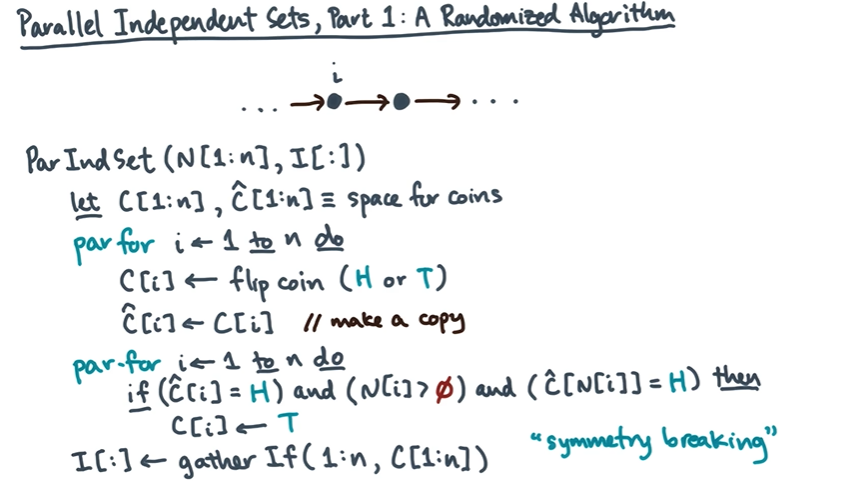 Parallel Independent Sets, Part 1: A Randomized Algorithm
i
... ...
ParIndSet (N[1:n], I[:])
let C[1:n], Ĉ[1:n] ≡ space for coins
par for i ← 1 to n do
C[i] ← flip coin (H or T)
Ĉ[i] ← C[i] // make a copy
par-for i ← 1 to n do
if (Ĉ[i] = H) and (N[i] > ∅) and (Ĉ[N[i]] = H) then
C[i] ← T
"symmetry breaking"
I[:] ← gather If(1:n, C[1:n])